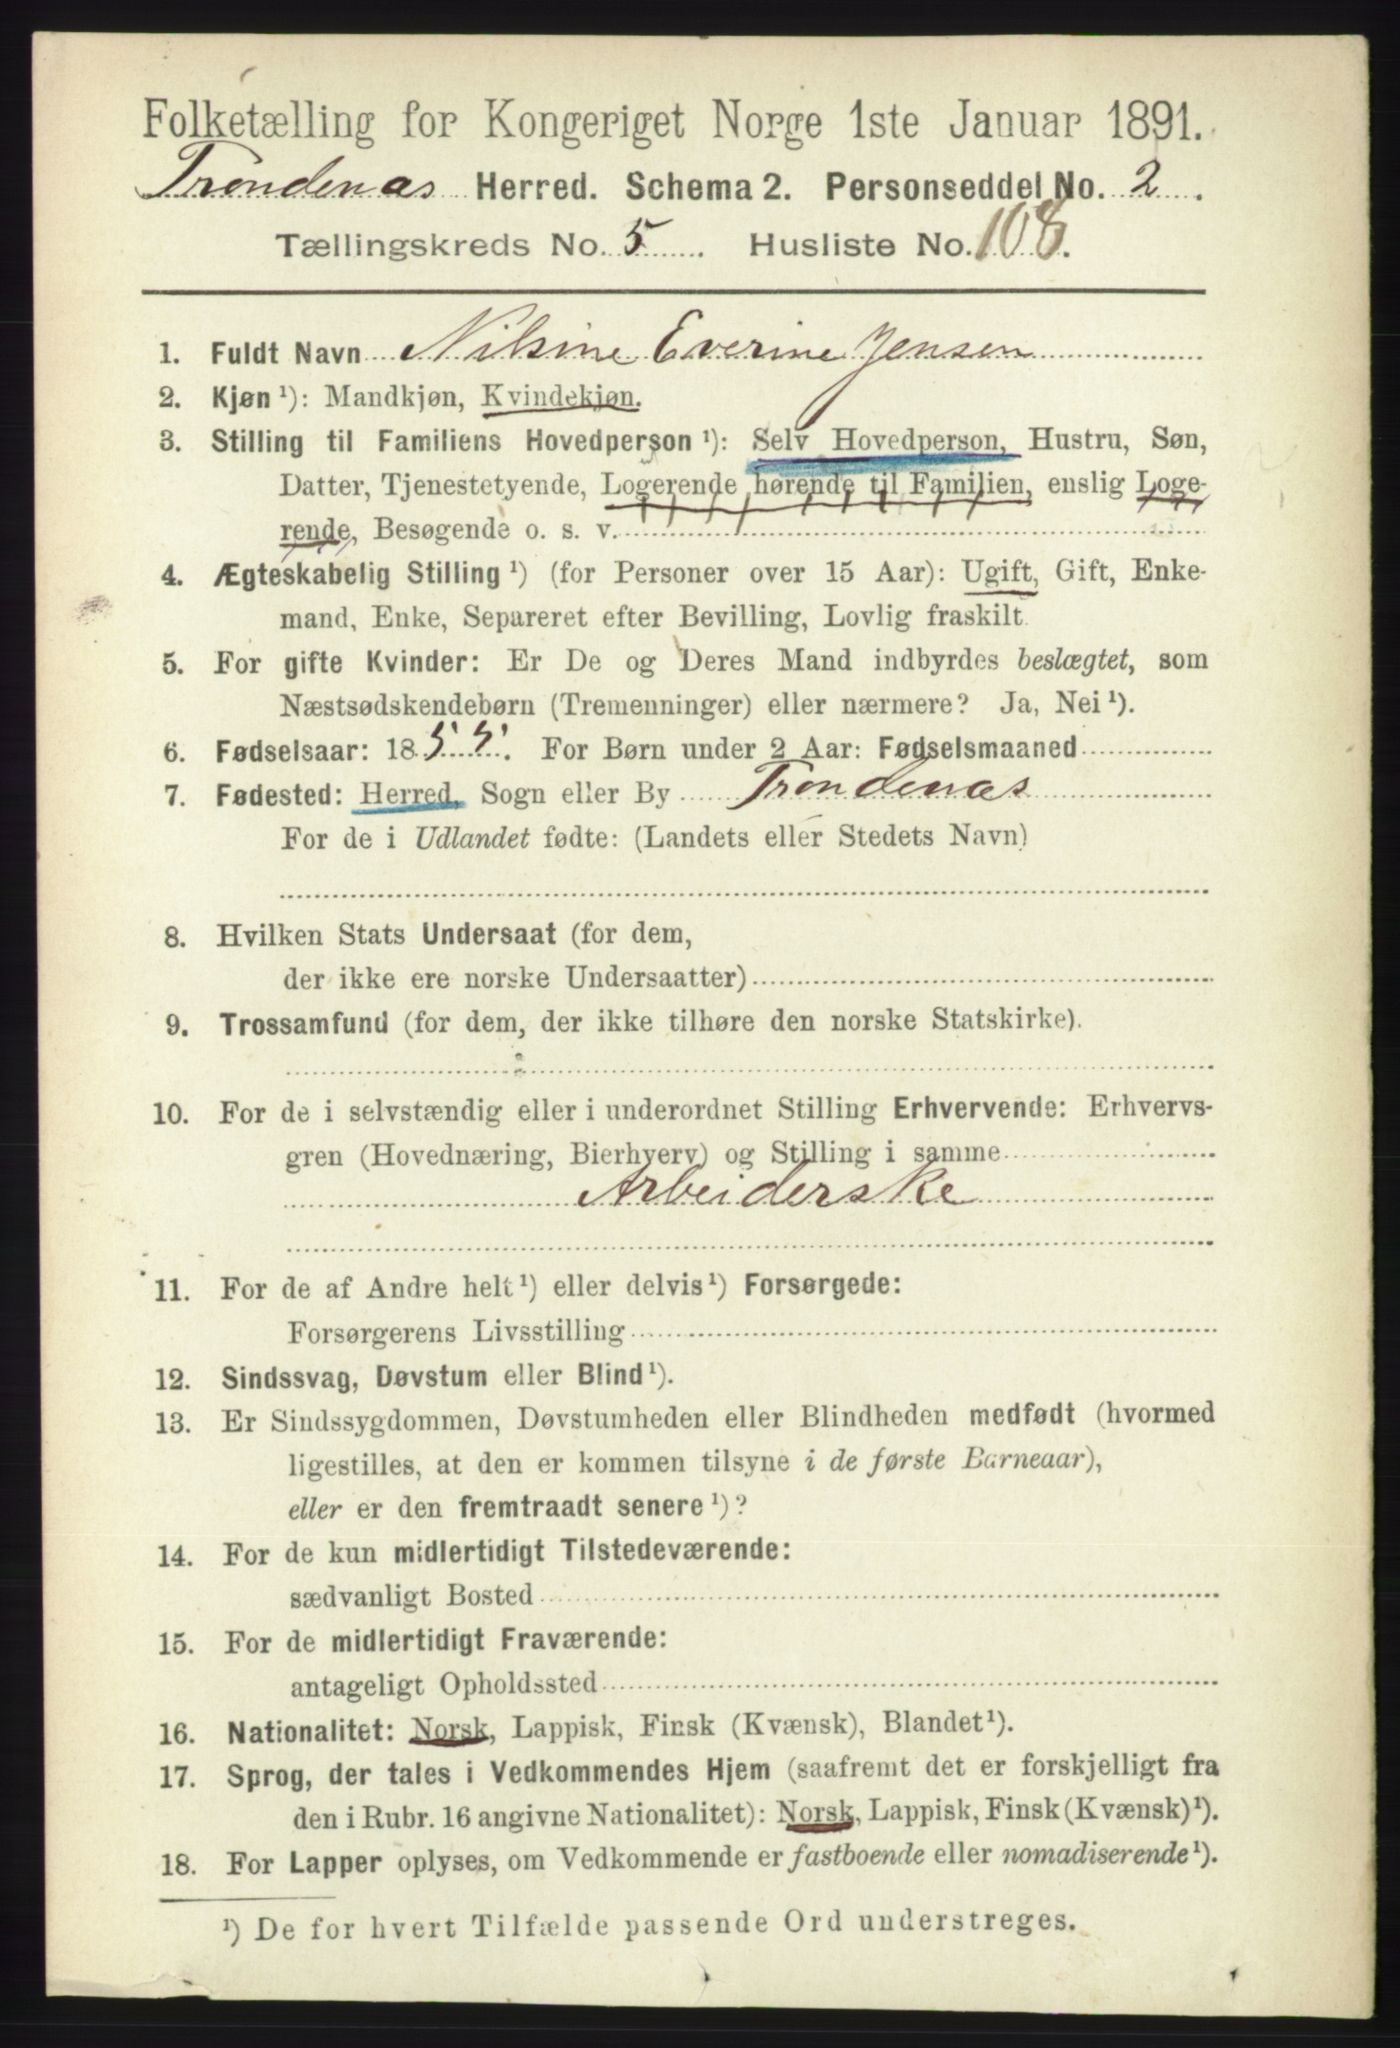 Folketælling for Kongeriget Norge 1ste Januar 1891.
Trondenas Herred. Schema 2. Personseddel No. 2.
Tællingskreds No. 5 Husliste No. 108.
1. Fuldt Navn Nilsine Everine Jensen
2. Kjøn ¹): Mandkjøn, Kvindekjøn.
3. Stilling til Familiens Hovedperson ¹): Selv Hovedperson, Hustru, Søn,
Datter, Tjenestetyende, Logerende hørende til Familien, enslig Loge-
rende, Besøgende o. s. v.
4. Ægteskabelig Stilling ¹) (for Personer over 15 Aar): Ugift, Gift, Enke-
mand, Enke, Separeret efter Bevilling, Lovlig fraskilt
5. For gifte Kvinder: Er De og Deres Mand indbyrdes beslægtet, som
Næstsødskendebørn (Tremenninger) eller nærmere? Ja, Nei ¹).
6. Fødselsaar: 1855. For Børn under 2 Aar: Fødselsmaaned
7. Fødested: Herred, Sogn eller By Trondenas
For de i Udlandet fødte: (Landets eller Stedets Navn)
8. Hvilken Stats Undersaat (for dem,
der ikke ere norske Undersaatter)
9. Trossamfund (for dem, der ikke tilhøre den norske Statskirke).
10. For de i selvstændig eller i underordnet Stilling Erhvervende: Erhvervs-
gren (Hovednæring, Bierhverv) og Stilling i samme
Arbeiderske
11. For de af Andre helt ¹) eller delvis ¹) Forsørgede:
Forsørgerens Livsstilling
12. Sindssvag, Døvstum eller Blind ¹).
13. Er Sindssygdommen, Døvstumheden eller Blindheden medfødt (hvormed
ligestilles, at den er kommen tilsyne i de første Barneaar),
eller er den fremtraadt senere ¹)?
14. For de kun midlertidigt Tilstedeværende:
sædvanligt Bosted
15. For de midlertidigt Fraværende:
antageligt Opholdssted
16. Nationalitet: Norsk, Lappisk, Finsk (Kvænsk), Blandet ¹).
17. Sprog, der tales i Vedkommendes Hjem (saafremt det er forskjelligt fra
den i Rubr. 16 angivne Nationalitet): Norsk, Lappisk, Finsk (Kvænsk) ¹).
18. For Lapper oplyses, om Vedkommende er fastboende eller nomadiserende ¹).
¹) De for hvert Tilfælde passende Ord understreges.